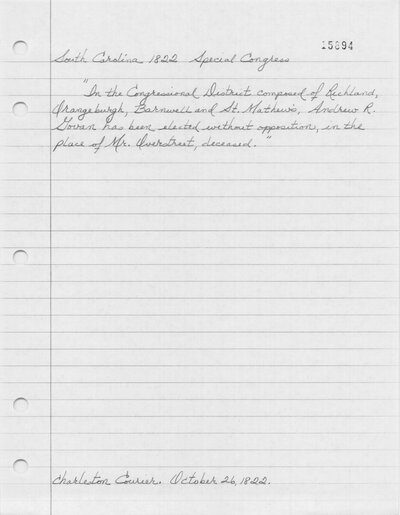 15894
South Carolina 1822 Special Congress
"In the Congressional District composed of Richland,
Orangeburgh, Barnwell and St. Mathews, Andrew R.
Govan has been elected without opposition, in the
place of Mr. Overstreet, deceased."
Charleston Courier. October 26, 1822.